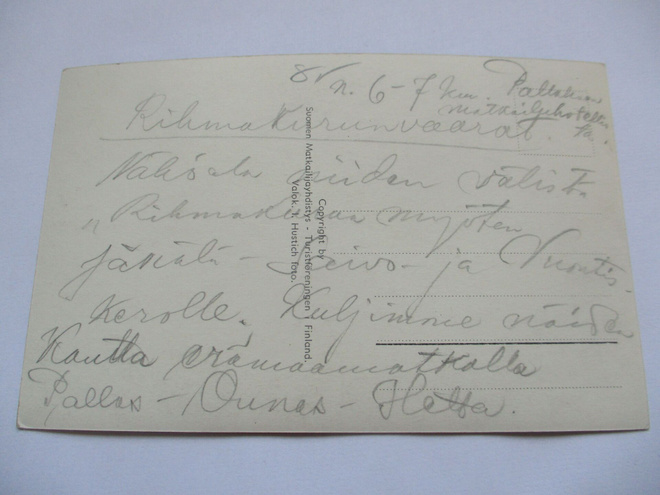 8/V n. 6-7 km. Pallaksen
matkailuhotellis
ta.
Rihmakurunvaarat.
Näköala niiden välistä
"Rihmakurua myöten
jäkälä- Keivo- ja Vuontis-
kerolle. Kuljimme näiden
kautta erämaamatkalla
Pallas - Ounas - Hetta.
Copyright by
Suomen Matkailijayhdistys - Turistföreningen i Finland.
Valok. I. Hustich Foto.